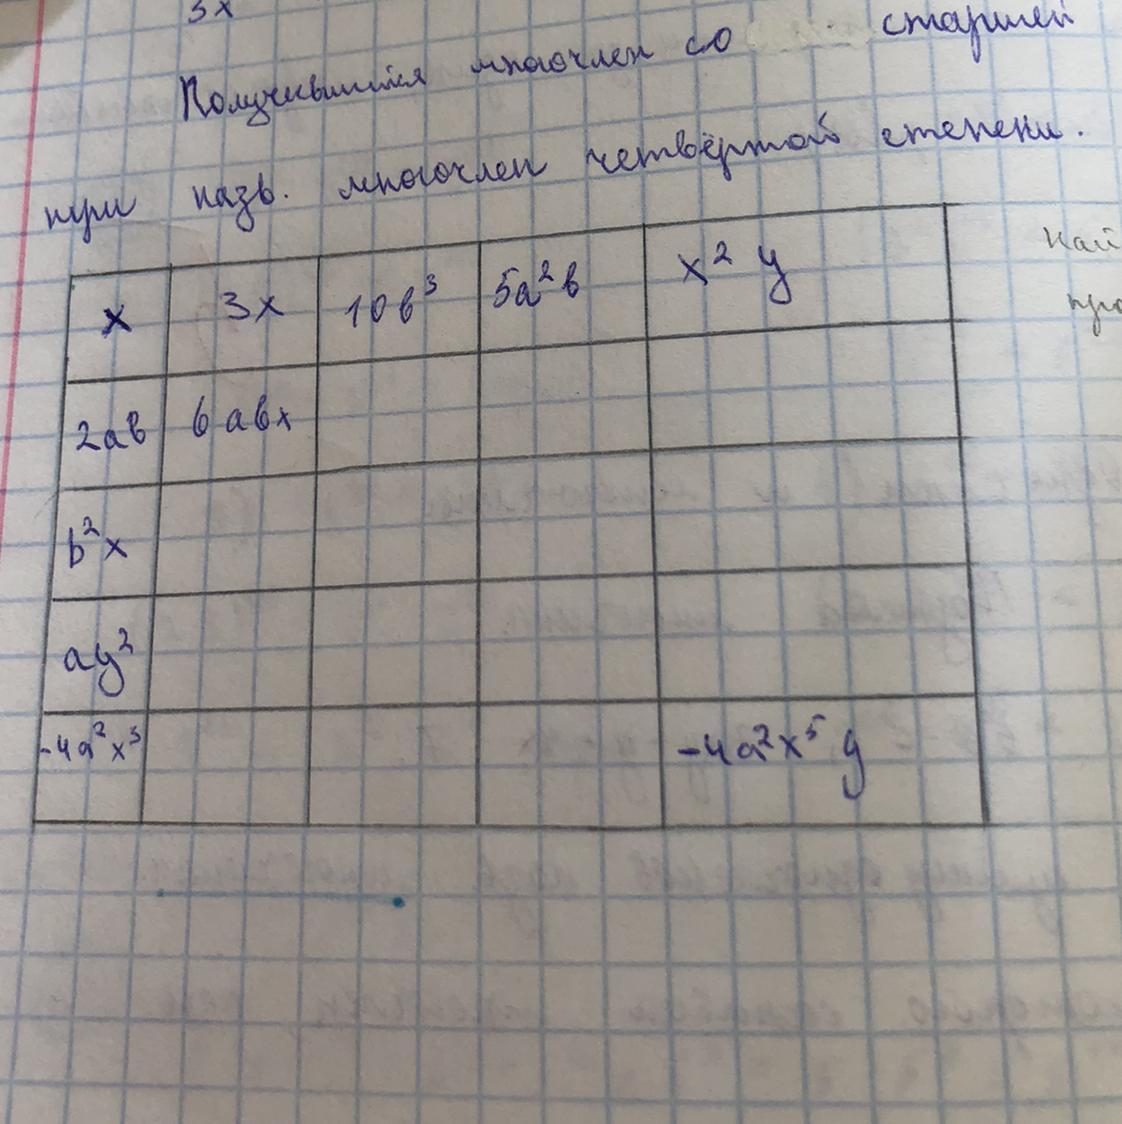 3x
Получившийся многочлен со старшей
при назв. многочлен четвёртой степени.
x 3x 10b³ 5a²b x²y
2ab 6abx
b²x
ay²
-4a²x³ -4a²x⁵y